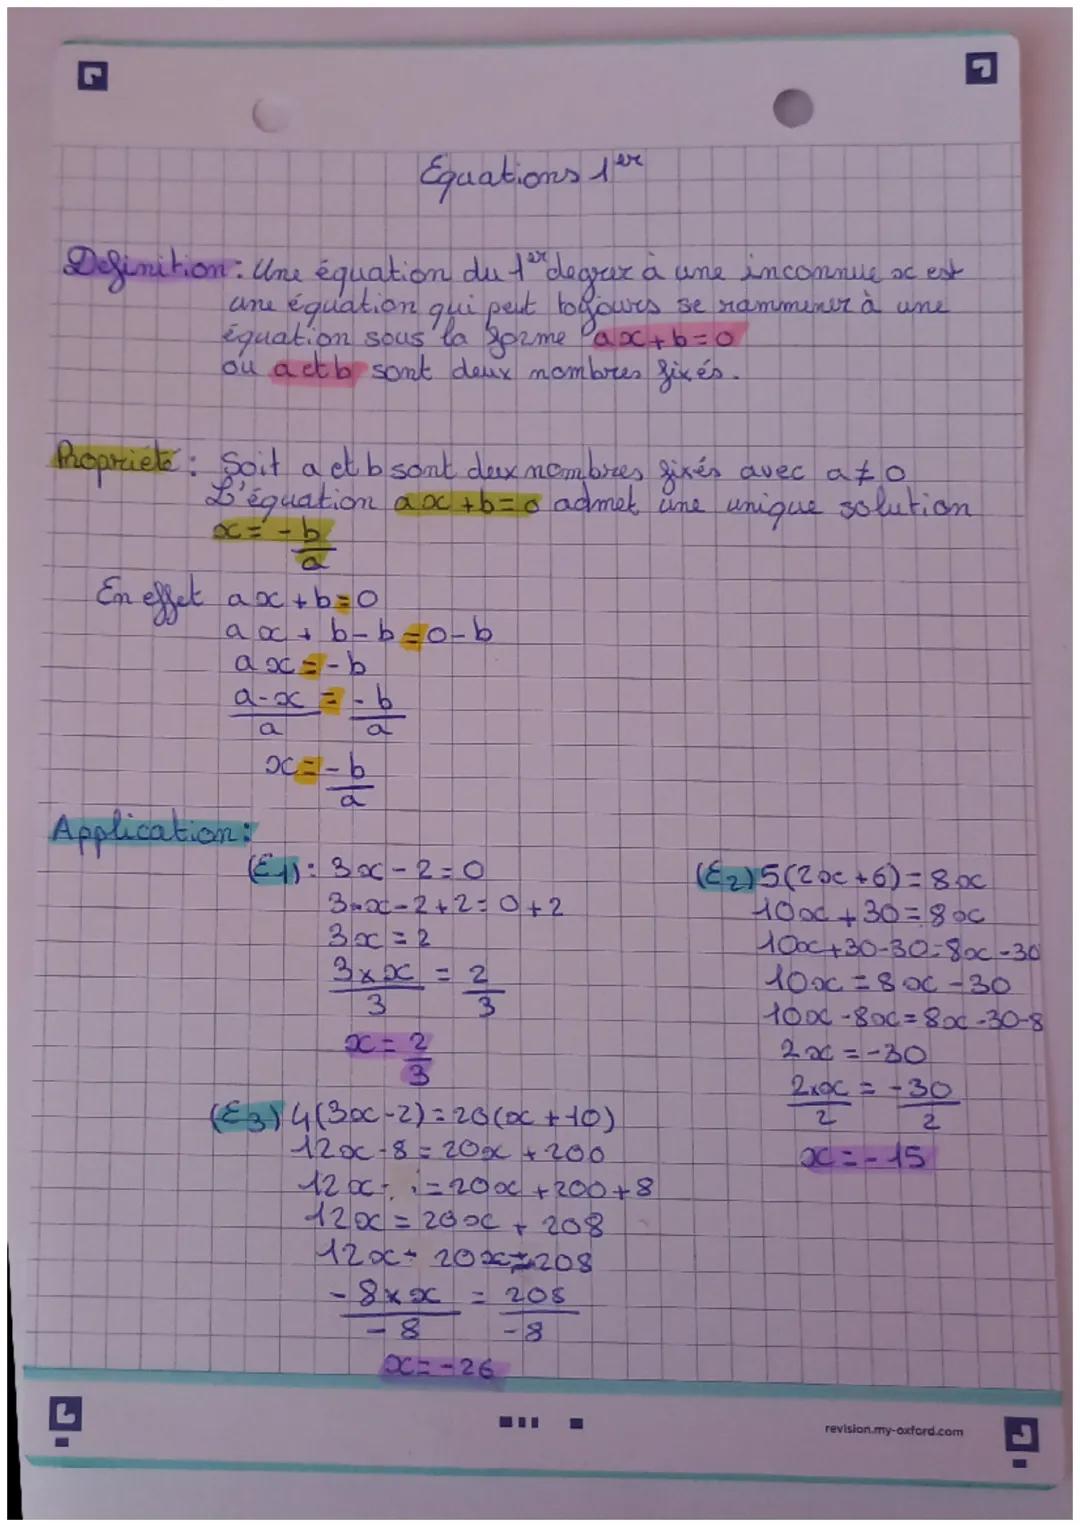 Equations 1er
Definition : Une équation du 1er degrer à une inconnue x est
une équation qui peut toujours se rammener à une
équation sous la forme ax+b=0
ou a et b sont deux nombres fixés.
Proprieté : Soit a et b sont deux nombres fixés avec a≠0
L'équation ax+b=0 admet une unique solution
x = -b/a
En effet ax+b=0
ax+b-b=0-b
ax=-b
a-x/a = -b/a
x=-b/a
Application :
(E1): 3x-2=0
3×x-2+2=0+2
3x=2
3×x/3 = 2/3
x=2/3
(E2) 5(2x+6)=8x
10x+30=8x
10x+30-30=8x-30
10x=8x-30
10x-8x=8x-30-8
2x=-30
2×x/2 = -30/2
x=-15
(E3) 4(3x-2)=20(x+10)
12x-8=20x+200
12x- =20x+200+8
12x=20x+208
12x- 20x=208
-8×x/-8 = 208/-8
x=-26
revision.my-oxford.com